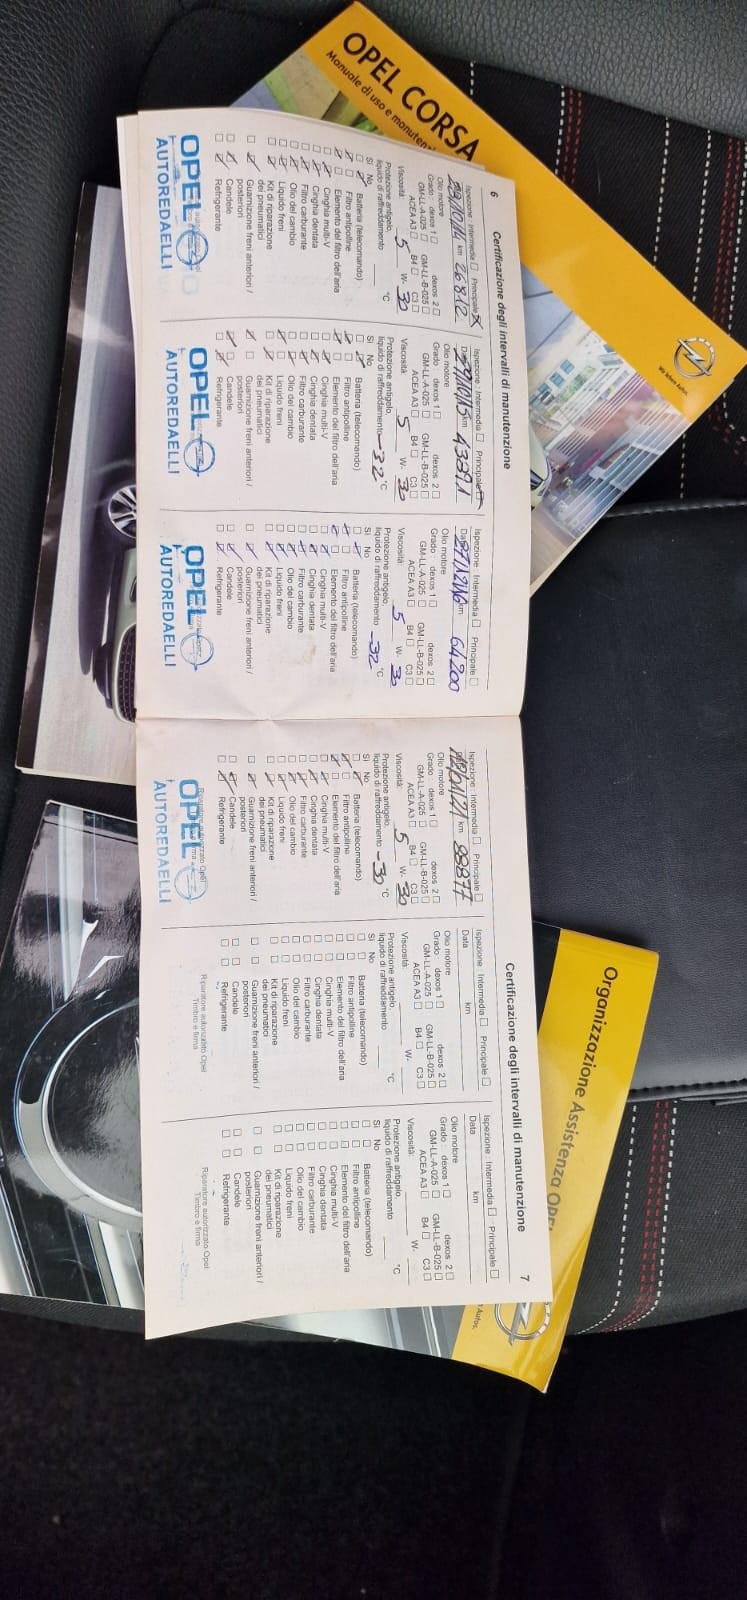 OPEL CORSA
Manuale di uso e manutenz
We drive Autos.
6 Certificazione degli intervalli di manutenzione
Ispezione: Intermedia ☐ Principale
km 26812
Olio motore
Grado dexos 1 ☐ dexos 2 ☐
GM-LL-A-025 ☐ GM-LL-B-025 ☐
ACEA A3 ☐ B4 ☐ C3 ☐
Viscosità: 5 W- 30
Protezione antigelo,
liquido di raffreddamento °C
Sì No
Batteria (telecomando)
Filtro antipolline
Elemento del filtro dell'aria
Cinghia multi-V
Cinghia dentata
Filtro carburante
Olio del cambio
Liquido freni
Kit di riparazione
dei pneumatici
Guarnizione freni anteriori /
posteriori
Candele
Refrigerante
OPEL
AUTOREDAELLI
Ispezione: Intermedia ☐ Principale
29/10/15 km 43891
Olio motore
Grado dexos 1 ☐ dexos 2 ☐
GM-LL-A-025 ☐ GM-LL-B-025 ☐
ACEA A3 ☐ B4 ☐ C3 ☐
Viscosità: 5 W- 30
Protezione antigelo,
liquido di raffreddamento -32 °C
Sì No
Batteria (telecomando)
Filtro antipolline
Elemento del filtro dell'aria
Cinghia multi-V
Cinghia dentata
Filtro carburante
Olio del cambio
Liquido freni
Kit di riparazione
dei pneumatici
Guarnizione freni anteriori /
posteriori
Candele
Refrigerante
OPEL
AUTOREDAELLI
Ispezione: Intermedia ☐ Principale ☐
km 64200
Olio motore
Grado dexos 1 ☐ dexos 2 ☐
GM-LL-A-025 ☐ GM-LL-B-025 ☐
ACEA A3 ☐ B4 ☐ C3 ☐
Viscosità: 5 W- 30
Protezione antigelo,
liquido di raffreddamento -32 °C
Sì No
Batteria (telecomando)
Filtro antipolline
Elemento del filtro dell'aria
Cinghia multi-V
Cinghia dentata
Filtro carburante
Olio del cambio
Liquido freni
Kit di riparazione
dei pneumatici
Guarnizione freni anteriori /
posteriori
Candele
Refrigerante
OPEL
AUTOREDAELLI
Certificazione degli intervalli di manutenzione 7
Ispezione: Intermedia ☐ Principale ☐
km 88877
Olio motore
Grado dexos 1 ☐ dexos 2 ☐
GM-LL-A-025 ☐ GM-LL-B-025 ☐
ACEA A3 ☐ B4 ☐ C3 ☐
Viscosità: 5 W- 30
Protezione antigelo,
liquido di raffreddamento -30 °C
Sì No
Batteria (telecomando)
Filtro antipolline
Elemento del filtro dell'aria
Cinghia multi-V
Cinghia dentata
Filtro carburante
Olio del cambio
Liquido freni
Kit di riparazione
dei pneumatici
Guarnizione freni anteriori /
posteriori
Candele
Refrigerante
Riparatore autorizzato Opel
OPEL
AUTOREDAELLI
Ispezione: Intermedia ☐ Principale ☐
Data km
Olio motore
Grado dexos 1 ☐ dexos 2 ☐
GM-LL-A-025 ☐ GM-LL-B-025 ☐
ACEA A3 ☐ B4 ☐ C3 ☐
Viscosità: W-
Protezione antigelo,
liquido di raffreddamento °C
Sì No
☐ ☐ Batteria (telecomando)
☐ ☐ Filtro antipolline
☐ ☐ Elemento del filtro dell'aria
☐ ☐ Cinghia multi-V
☐ ☐ Cinghia dentata
☐ ☐ Filtro carburante
☐ ☐ Olio del cambio
☐ ☐ Liquido freni
☐ ☐ Kit di riparazione
dei pneumatici
☐ ☐ Guarnizione freni anteriori /
posteriori
☐ ☐ Candele
☐ ☐ Refrigerante
Riparatore autorizzato Opel
Timbro e firma
Ispezione: Intermedia ☐ Principale ☐
Data km
Olio motore
Grado dexos 1 ☐ dexos 2 ☐
GM-LL-A-025 ☐ GM-LL-B-025 ☐
ACEA A3 ☐ B4 ☐ C3 ☐
Viscosità: W-
Protezione antigelo,
liquido di raffreddamento °C
Sì No
☐ ☐ Batteria (telecomando)
☐ ☐ Filtro antipolline
☐ ☐ Elemento del filtro dell'aria
☐ ☐ Cinghia multi-V
☐ ☐ Cinghia dentata
☐ ☐ Filtro carburante
☐ ☐ Olio del cambio
☐ ☐ Liquido freni
☐ ☐ Kit di riparazione
dei pneumatici
☐ ☐ Guarnizione freni anteriori /
posteriori
☐ ☐ Candele
☐ ☐ Refrigerante
Riparatore autorizzato Opel
Timbro e firma
Organizzazione Assistenza OPEL
Autos.